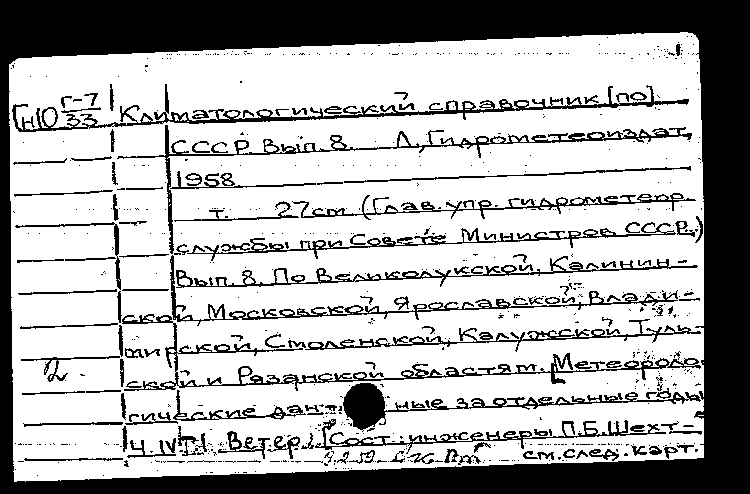 1
[Н]О Г-7/33 Климатологический справочник [по]
СССР. Вып. 8. Л., Гидрометеоиздат,
1958.
т. 27см (Глав. упр. гидрометеор.
службы при Совете Министров СССР.)
Вып. 8. По Великолукской, Калинин-
ской, Московской, Ярославской, Влади-
мирской, Смоленской, Калужской, Туль-
2. ской и Рязанской областям. [Метеороло-
гические дан- ные за отдельные годы
Ч. IV Ветер. [Сост: инженеры П.Б.Шехт-
см. след. карт.